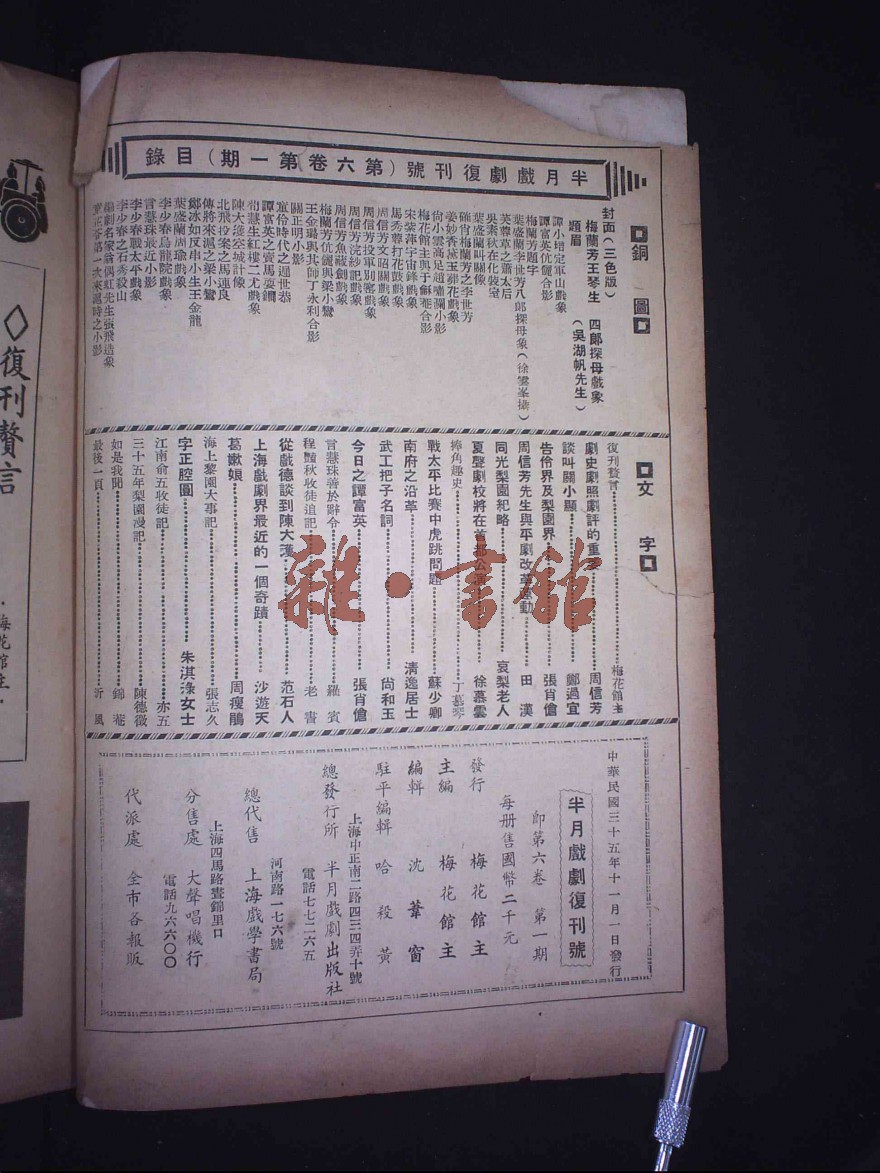 半月戲劇復刊號（第六卷第一期）目錄
銅圖
封面（三色版）
梅蘭芳王琴生 四郎探母戲象
題眉 （吳湖帆先生）
譚小培定軍山戲象
譚富英伉儷合影
梅蘭芳題字
葉盛蘭李世芳八郎探母象（徐雲峯攝）
芙蓉草之蕭太后
吳素秋在化裝室
葉盛蘭叫關像
礳梅蘭芳之李世芳
姜妙香黛玉葬花戲象
尙小雲高足趙嘯瀾小影
梅花館主與于蘇菴合影
宋紫萍宇宙鋒戲象
馬秀蓉打花鼓戲象
周信芳文昭關戲象
周信芳投軍別窰戲象
周信芳浣紗記戲象
周信芳魚藏劍戲象
梅蘭芳伉儷與梁小鸞
王金璐與其師丁永利合影
關正明小影
童伶時代之遲世恭
譚富英之賣馬耍鐧
荀慧生紅樓二尤戲象
陳大濩空城計像
北飛投案之馬連良
傳將來滬之梁小鸞
鄭冰如反串小生王金龍
葉盛蘭周瑜戲象
李少春烏龍院戲象
言慧珠最近小影
李少春戰太平戲象
李少春之石秀殺山
編劇名家翁偶虹先生張飛造象
童芷苓第一次來滬時之小影
文字
復刊贅言 梅花館主
劇史劇照劇評的重要 周信芳
談叫關小顯 鄭過宜
告伶界及梨園界 張肖傖
周信芳先生與平劇改革運動 田漢
同光梨園紀略 哀梨老人
夏聲劇校將在首都公演 徐慕雲
捧角趣史 丁慕琴
戰太平比賽中虎跳問題 蘇少卿
南府之沿革 清逸居士
武工把子名詞 尙和玉
今日之譚富英 張肖傖
言慧珠善於辭令 羅賓
程豔秋收徒追記 老書
從戲德談到陳大濩 范石人
上海戲劇界最近的一個奇蹟 沙遊天
葛嫩娘 周瘦鵑
海上黎園大事記 張志久
字正腔圓 朱淇淥女士
江南俞五收徒記 亦五
三十五年梨園漫記 陳德徵
如是我聞 錦菴
最後一頁 沂風
中華民國三十五年十一月一日發行
半月戲劇復刊號
即第六卷 第一期
每册售國幣二千元
發行 梅花館主
主編 梅花館主
編輯 沈葦窗
駐平編輯 哈殺黃
上海中正南二路四三四弄十號
總發行所 半月戲劇出版社
電話七七二六五
河南路一七六號
總代售 上海戲學書局
上海四馬路晝錦里口
分售處 大聲唱機行
電話九六六〇〇
代派處 全市各報販
◇復刊贅言
·梅花館主·
雜·書舘